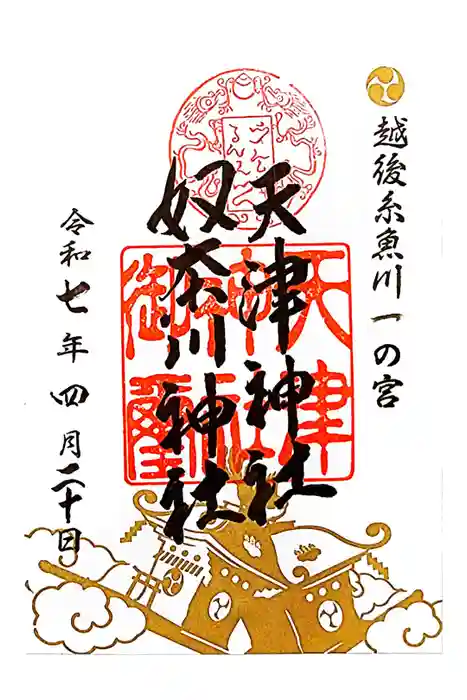 越後糸魚川一の宮
天津神社
奴奈川神社
天津神社御璽
令和七年四月二十日